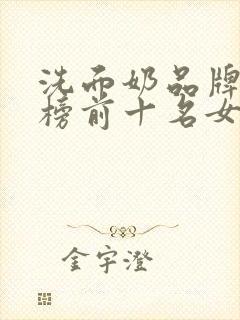 洗面奶品牌
榜前十名女
金宇澄